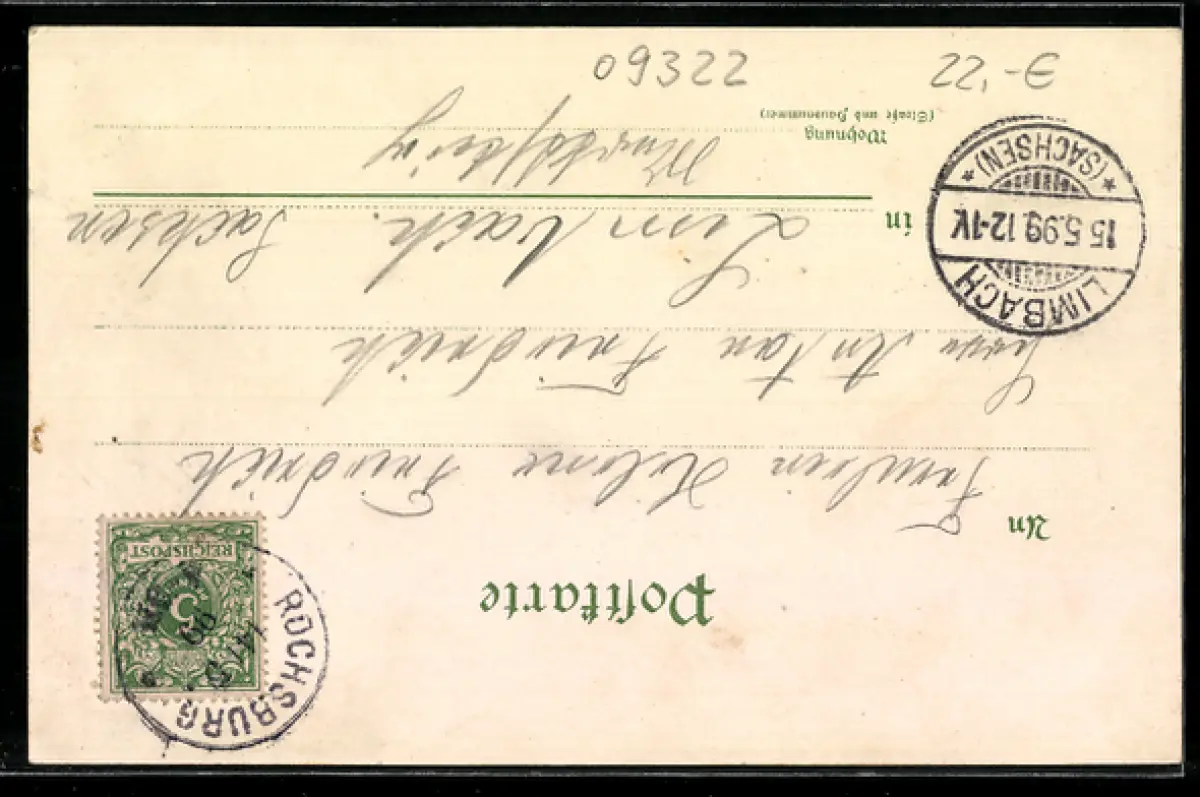 09322
22,-€
Postkarte
An Fräulein Helene Friedrich
Herrn Anton Friedrich
in Limbach. Sachsen
Wohnung
(Straße und Hausnummer)
REICHSPOST
5
ROCHSBURG
LIMBACH
15.5.99.12-1N.
*(SACHSEN)*